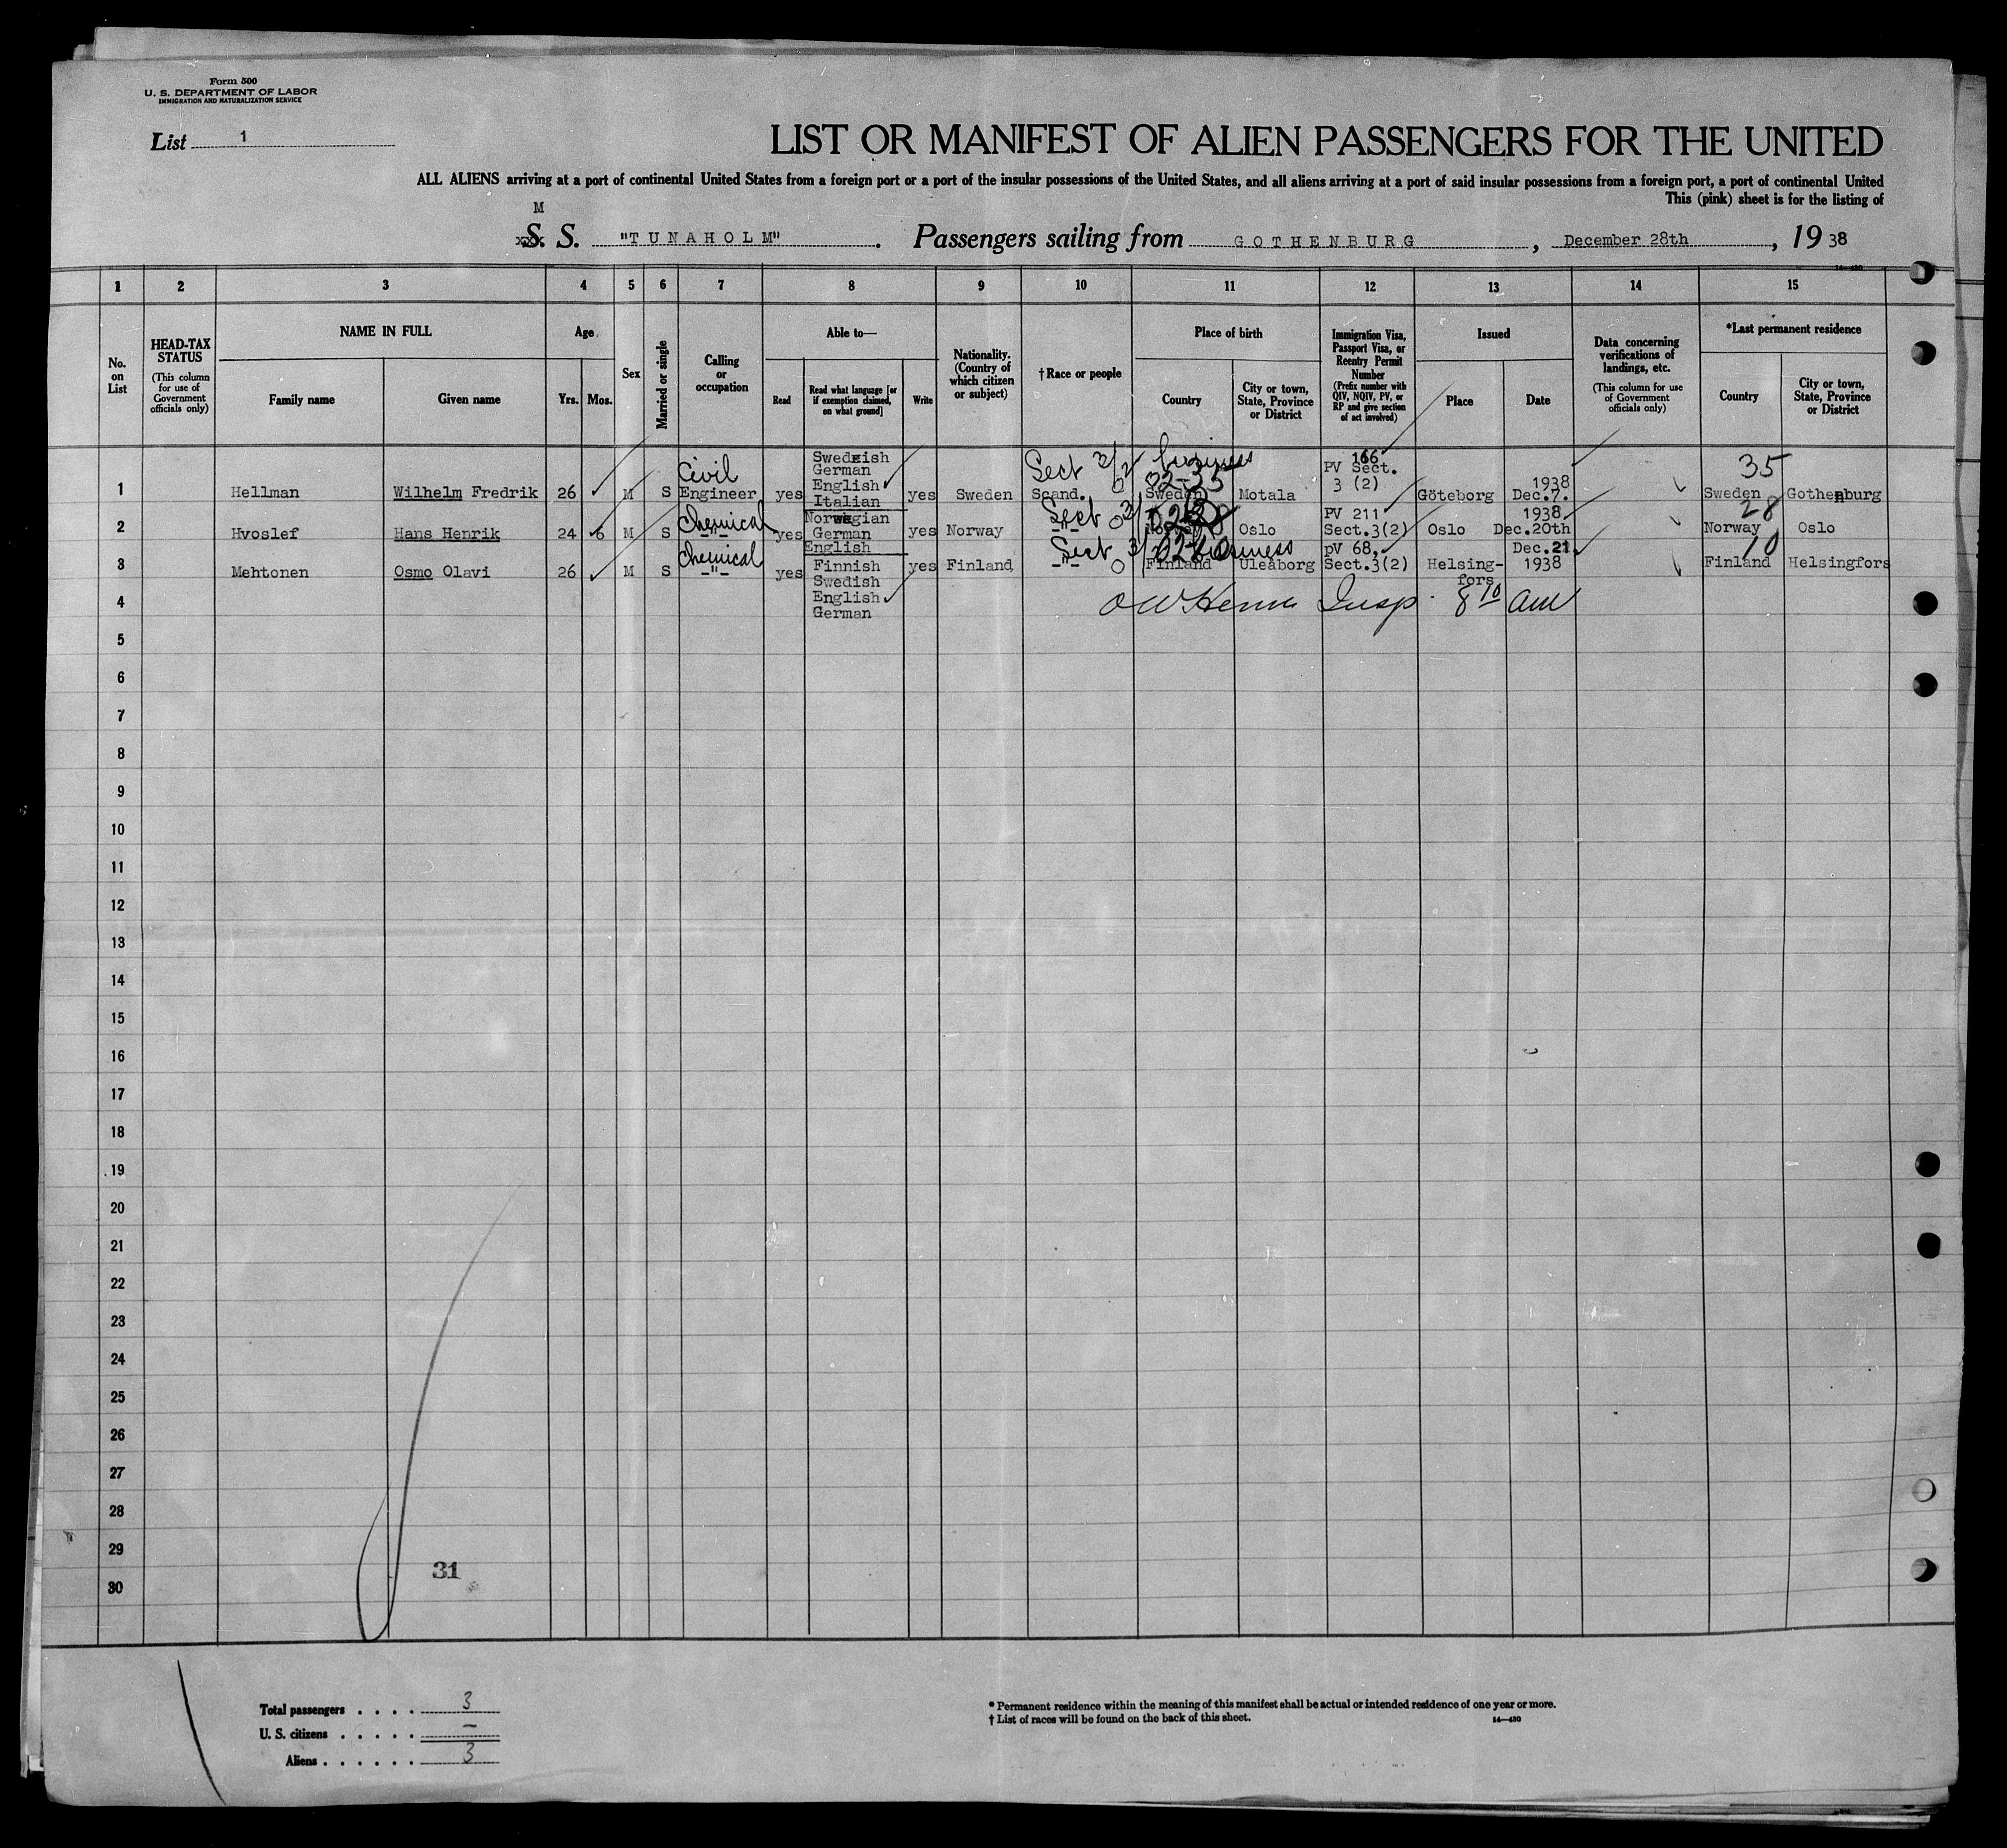 Form 500
U. S. DEPARTMENT OF LABOR
IMMIGRATION AND NATURALIZATION SERVICE
List 1
LIST OR MANIFEST OF ALIEN PASSENGERS FOR THE UNITED
ALL ALIENS arriving at a port of continental United States from a foreign port or a port of the insular possessions of the United States, and all aliens arriving at a port of said insular possessions from a foreign port, a port of continental United
This (pink) sheet is for the listing of
M
S. S. "TUNAHOLM". Passengers sailing from GOTHENBURG, December 28th, 19 38
14—430
1 2 3 4 5 6 7 8 9 10 11 12 13 14 15
No. on List
HEAD-TAX STATUS
(This column for use of Government officials only)
NAME IN FULL
Family name Given name
Age
Yrs. Mos.
Sex
Married or single
Calling or occupation
Able to—
Read
Read what language [or if exemption claimed, on what ground]
Write
Nationality. (Country of which citizen or subject)
† Race or people
Place of birth
Country
City or town, State, Province or District
Immigration Visa, Passport Visa, or Reentry Permit Number
(Prefix number with QIV, NQIV, PV, or RP and give section of act involved)
Issued
Place Date
Data concerning verifications of landings, etc.
(This column for use of Government officials only)
*Last permanent residence
Country
City or town, State, Province or District
1 Hellman Wilhelm Fredrik 26 M S Civil Engineer yes Swedish German English Italian yes Sweden Sect Scand. business 02-35 Sweden Motala PV 166 Sect. 3 (2) Göteborg 1938 Dec.7. 35 Sweden Gothenburg
2 Hvoslef Hans Henrik 24 6 M S Chemical -"- yes Norwegian German English yes Norway Sect -"- Oslo PV 211 Sect.3(2) Oslo 1938 Dec.20th 28 Norway Oslo
3 Mehtonen Osmo Olavi 26 M S Chemical -"- yes Finnish Swedish English German yes Finland Sect -"- business Finland Uleåborg pV 68, Sect.3(2) Helsing-fors Dec.21 1938 10 Finland Helsingfors
4 Insp. 8 10 AM
5
6
7
8
9
10
11
12
13
14
15
16
17
18
19
20
21
22
23
24
25
26
27
28
29
30
31
Total passengers . . . . 3
U. S. citizens . . . . . —
Aliens . . . . . . 3
* Permanent residence within the meaning of this manifest shall be actual or intended residence of one year or more.
† List of races will be found on the back of this sheet.
14—430